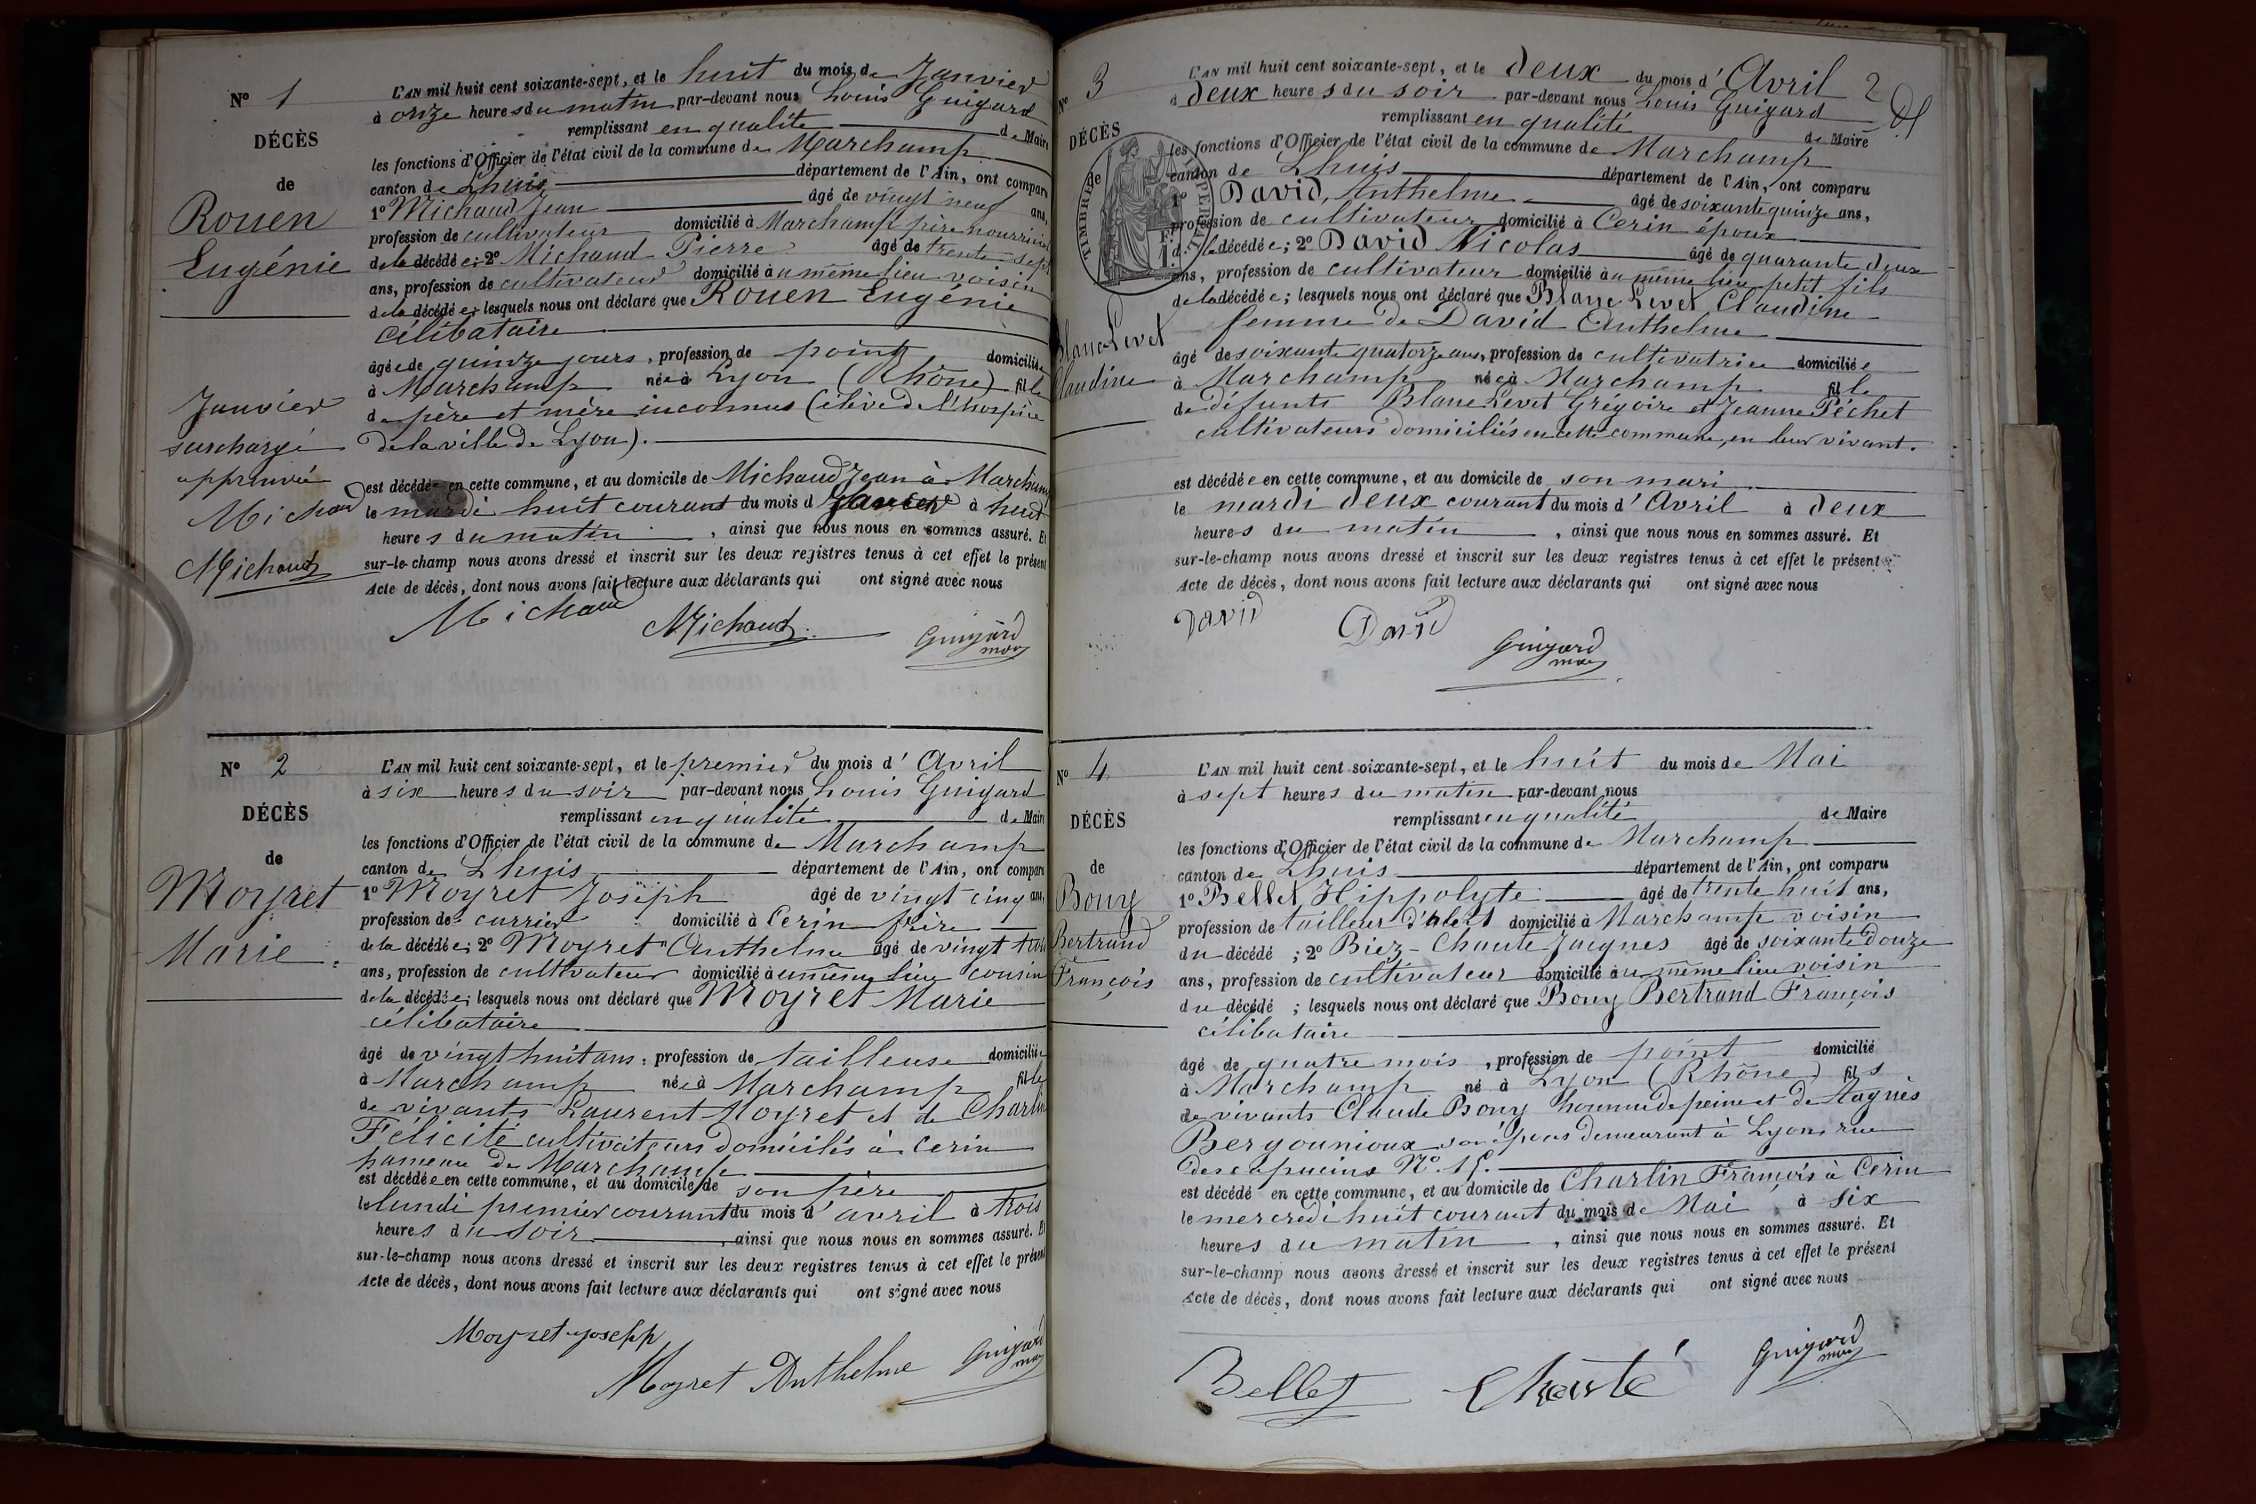 N° 1
DÉCÈS
de
Rouen
Eugénie
Janvier
surchargé
approuvé
Michaud
Michaud
L'AN mil huit cent soixante-sept, et le huit du mois de Janvier
à onze heures du matin par-devant nous Louis Guigard
remplissant en qualité de Maire
les fonctions d'Officier de l'état civil de la commune de Marchamp
canton de Lhuis département de l'Ain, ont comparu
1° Michaud Jean âgé de vingt neuf ans,
profession de cultivateur domicilié à Marchamp père nourricier
de la décédée; 2° Michaud Pierre âgé de trente sept
ans, profession de cultivateur domicilié au même lieu voisin
de la décédée; lesquels nous ont déclaré que Rouen Eugénie
célibataire
âgée de quinze jours, profession de point domiciliée
à Marchamp née à Lyon (Rhône) fille
de père et mère inconnus (élève de l'hospice
de la ville de Lyon).
est décédée en cette commune, et au domicile de Michaud Jean à Marchamp
le mardi huit courant du mois d Janvier à huit
heures du matin, ainsi que nous nous en sommes assuré. Et
sur-le-champ nous avons dressé et inscrit sur les deux registres tenus à cet effet le présent
Acte de décès, dont nous avons fait lecture aux déclarants qui ont signé avec nous
Michaud Michaud Guigard
maire
N° 2
DÉCÈS
de
Moyret
Marie
L'AN mil huit cent soixante-sept, et le premier du mois d'Avril
à six heures du soir par-devant nous Louis Guigard
remplissant en qualité de Maire
les fonctions d'Officier de l'état civil de la commune de Marchamp
canton de Lhuis département de l'Ain, ont comparu
1° Moyret Joseph âgé de vingt cinq ans,
profession de carrier domicilié à Cerin frère
de la décédée; 2° Moyret Anthelme âgé de vingt trois
ans, profession de cultivateur domicilié au même lieu cousin
de la décédée; lesquels nous ont déclaré que Moyret Marie
célibataire
âgé de vingt huit ans, profession de tailleuse domiciliée
à Marchamp née à Marchamp fille
de vivants Laurent Moyret et de Charlin
Félicité cultivateurs domiciliés à Cerin
hameau de Marchamp
est décédée en cette commune, et au domicile de son père
le lundi premier courant du mois d'avril à trois
heures du soir, ainsi que nous nous en sommes assuré. Et
sur-le-champ nous avons dressé et inscrit sur les deux registres tenus à cet effet le présent
Acte de décès, dont nous avons fait lecture aux déclarants qui ont signé avec nous
Moyret joseph
Moyret Anthelme Guigard
maire
2
N° 3
DÉCÈS
de
TIMBRE IMPÉRIAL
Blanc Levet
Claudine
L'AN mil huit cent soixante-sept, et le deux du mois d'Avril
à deux heures du soir par-devant nous Louis Guigard
remplissant en qualité de Maire
les fonctions d'Officier de l'état civil de la commune de Marchamp
canton de Lhuis département de l'Ain, ont comparu
1° David, Anthelme âgé de soixante quinze ans,
profession de cultivateur domicilié à Cerin époux
d. la décédée; 2° David Nicolas âgé de quarante deux
ans, profession de cultivateur domicilié au même lieu petit fils
de la décédée; lesquels nous ont déclaré que Blanc Levet Claudine
femme de David Anthelme
âgé de soixante quatorze ans, profession de cultivatrice domiciliée
à Marchamp née à Marchamp fille
de défunts Blanc Levet Grégoire et Jeanne Péchet
cultivateurs domiciliés en cette commune, en leur vivant.
est décédée en cette commune, et au domicile de son mari
le mardi deux courant du mois d'Avril à deux
heures du matin, ainsi que nous nous en sommes assuré. Et
sur-le-champ nous avons dressé et inscrit sur les deux registres tenus à cet effet le présent
Acte de décès, dont nous avons fait lecture aux déclarants qui ont signé avec nous
David David Guigard
maire
N° 4
DÉCÈS
de
Bouy
Bertrand
François
L'AN mil huit cent soixante-sept, et le huit du mois de Mai
à sept heures du matin par-devant nous
remplissant en qualité de Maire
les fonctions d'Officier de l'état civil de la commune de Marchamp
canton de Lhuis département de l'Ain, ont comparu
1° Bellet Hippolyte âgé de trente huit ans,
profession de tailleur d'abits domicilié à Marchamp voisin
du décédé; 2° Biez-Chauté Jacques âgé de soixante douze
ans, profession de cultivateur domicilié au même lieu voisin
du décédé; lesquels nous ont déclaré que Bouy Bertrand François
célibataire
âgé de quatre mois, profession de point domicilié
à Marchamp né à Lyon (Rhône) fils
de vivants Claude Bouy homme de peine et de Agnès
Bergounioux son épous demeurant à Lyon rue
des capucins N° 15.
est décédé en cette commune, et au domicile de Charlin François à Cerin
le mercredi huit courant du mois de Mai à six
heures du matin, ainsi que nous nous en sommes assuré. Et
sur-le-champ nous avons dressé et inscrit sur les deux registres tenus à cet effet le présent
Acte de décès, dont nous avons fait lecture aux déclarants qui ont signé avec nous
Bellet Chauté Guigard
maire